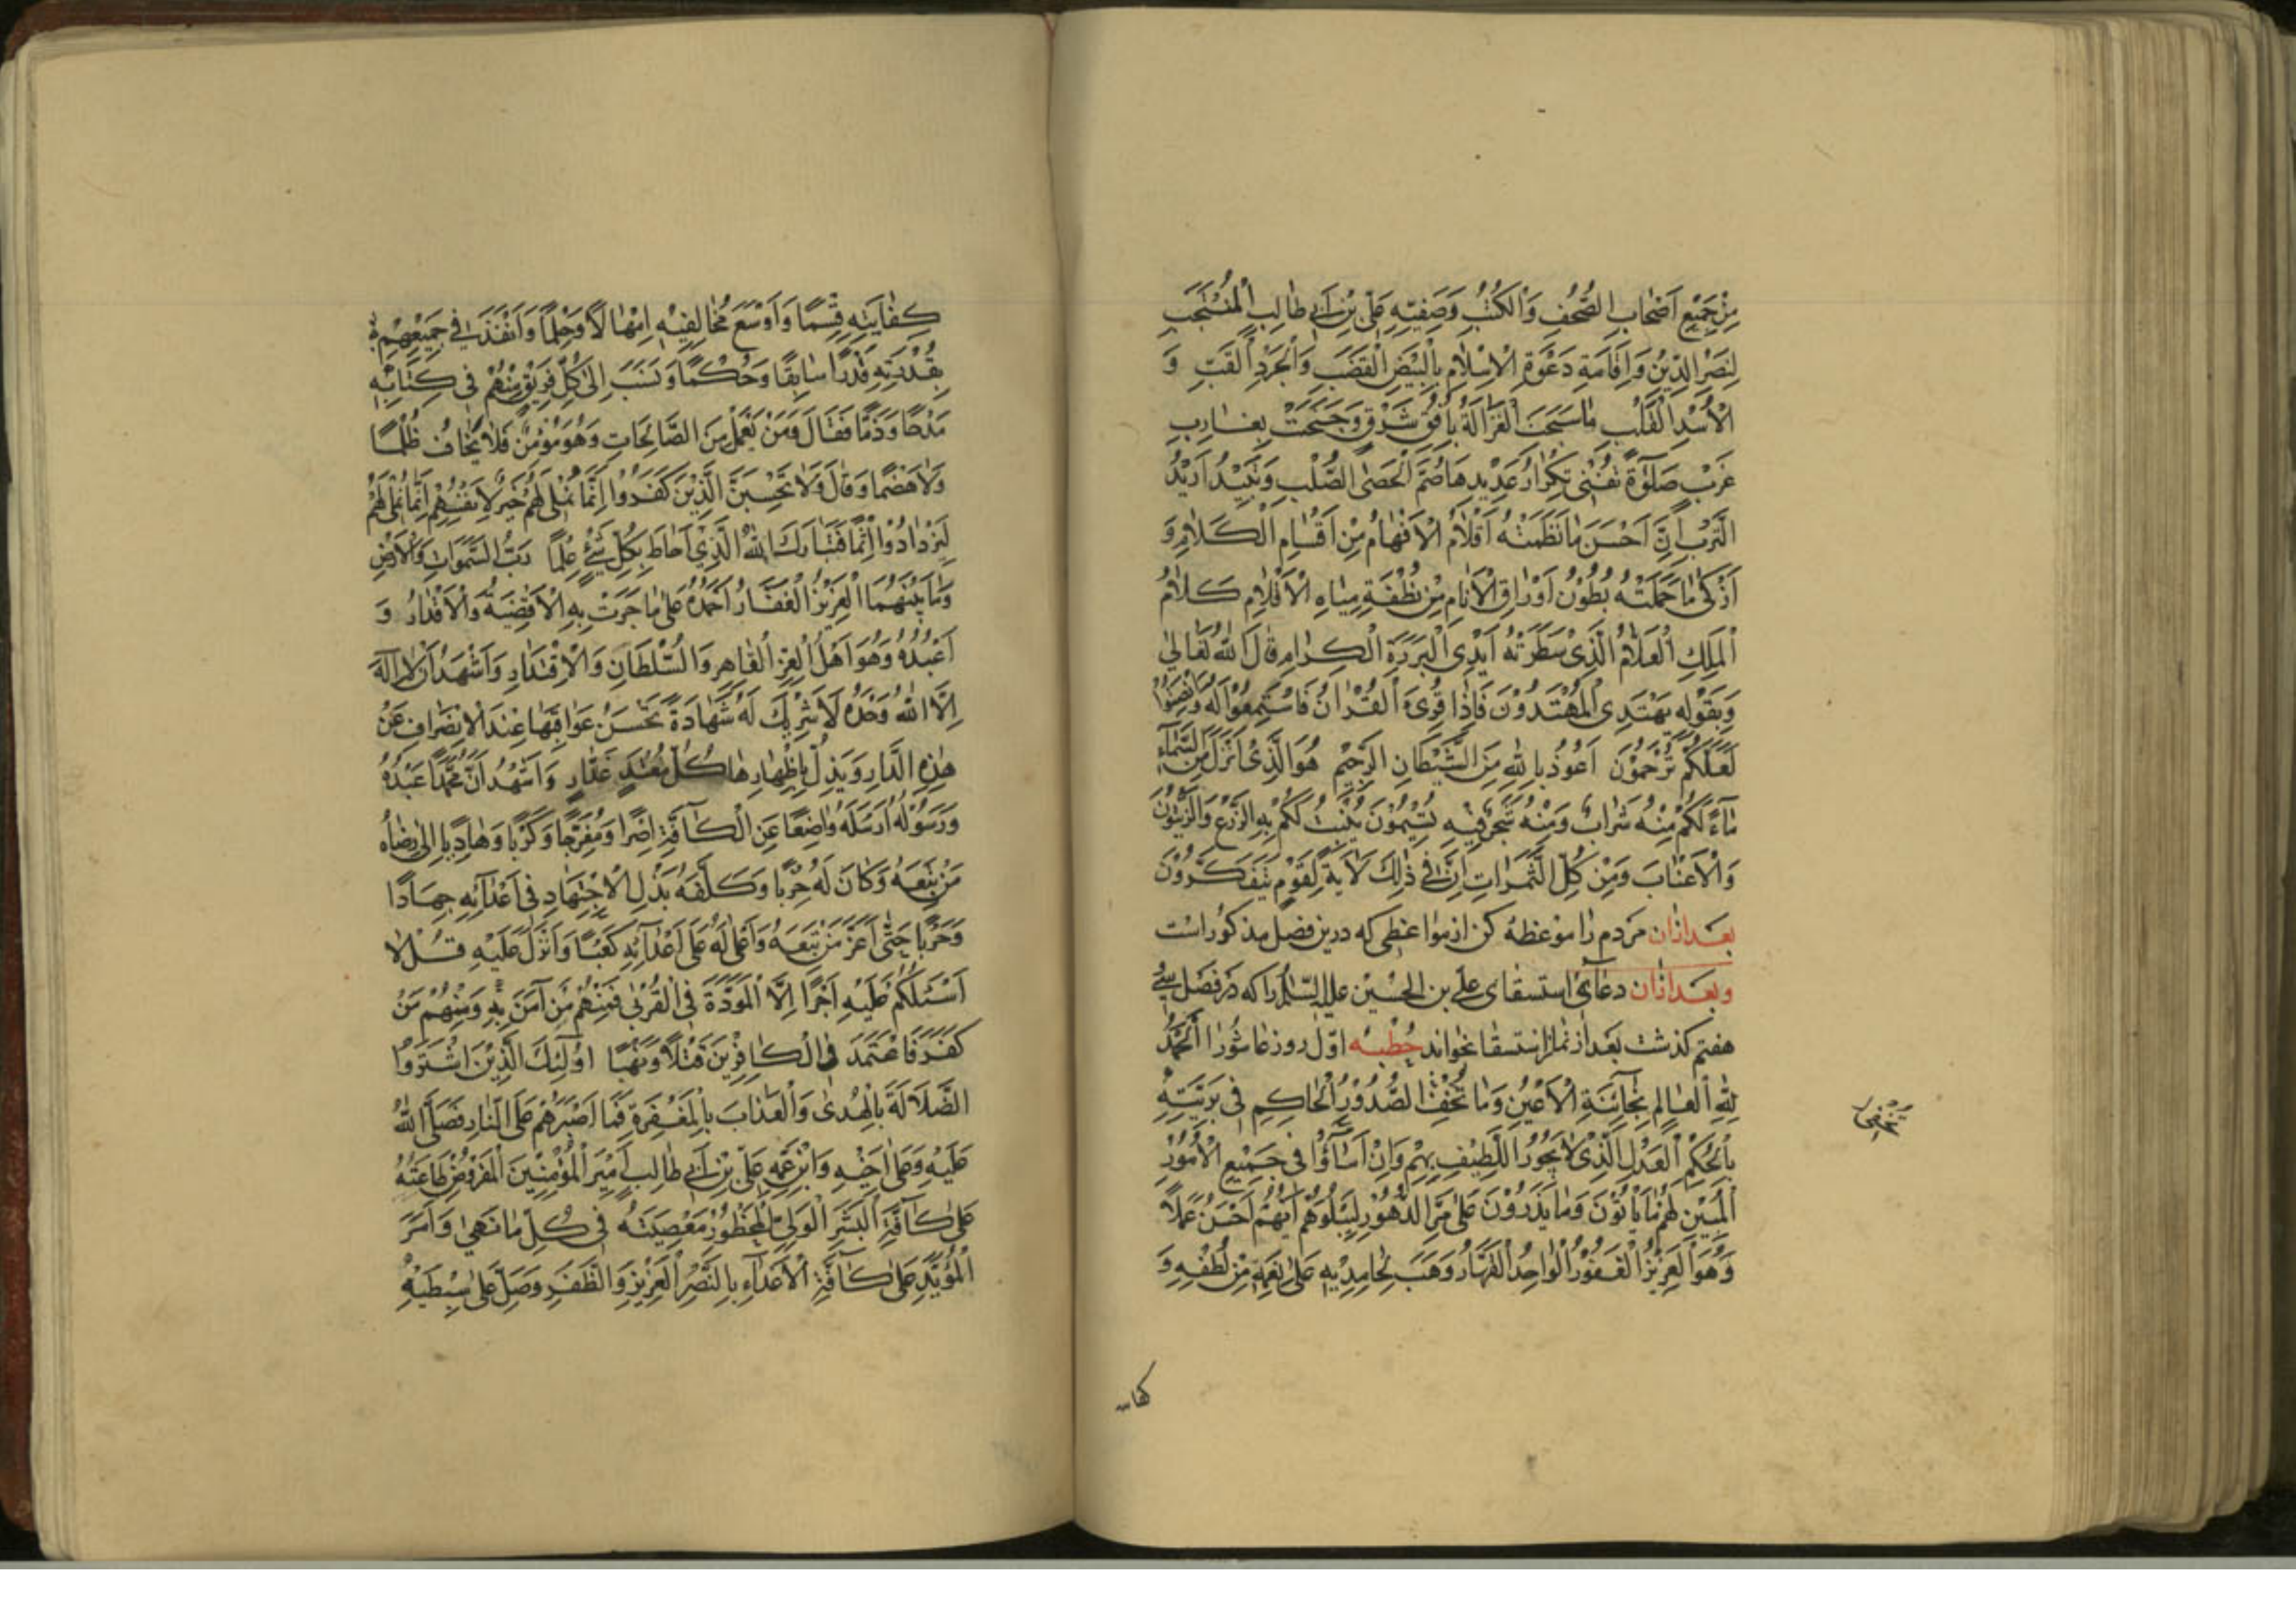 مِنْ جَمِيْعِ اَصْحَابِ الصُّحُفِ وَالْكُتُبِ وَصَفِيِّهِ عَلِيِّ بْنِ اَبِي طَالِبِ الْمُنْتَجَبِ
لِنَصْرِ الدِّيْنِ وَاِقَامَةِ دَعْوَةِ الْاِسْلَامِ بِالْبِيْضِ الْقَضَبِ وَالْجُرْدِ الْقَبِّ وَ
الْاُسْدِ الْغُلْبِ مَا سَبَحَتِ الْغَزَالَةُ بِاُفُقِ شَرْقٍ وَجَنَحَتْ بِغَارِبِ
غَرْبٍ صَلٰوةً تُفْنِىْ تِكْرَارُ عَدِيْدِهَا صُمَّ الْحَصَى الصُّلْبِ وَتُبِيْدُ اَدِيْدُ
التُّرْبِ اِنَّ اَحْسَنَ مَا نَظَمَتْهُ اَقْلَامُ الْاَفْهَامِ مِنْ اَقْسَامِ الْكَلَامِ وَ
اَزْكَى مَا حَمَلَتْهُ بُطُوْنُ اَوْرَاقِ الْاَنَامِ مِنْ نُطْفَةِ مِيَاهِ الْاَقْلَامِ كَلَامُ
الْمَلِكِ الْعَلَّامِ الَّذِىْ سَطَرَتْهُ اَيْدِى الْبَرَرَةِ الْكِرَامِ قَالَ اللهُ تَعَالٰى
وَبِقَوْلِهِ يَهْتَدِى الْمُهْتَدُوْنَ فَاِذَا قُرِىَ الْقُرْاٰنُ فَاسْتَمِعُوْا لَهُ وَاَنْصِتُوْا
لَعَلَّكُمْ تُرْحَمُوْنَ اَعُوْذُ بِاللهِ مِنَ الشَّيْطَانِ الرَّجِيْمِ هُوَ الَّذِىْ اَنْزَلَ مِنَ السَّمَآءِ
مَآءً لَكُمْ مِنْهُ شَرَابٌ وَمِنْهُ شَجَرٌ فِيْهِ تُسِيْمُوْنَ يُنْبِتُ لَكُمْ بِهِ الزَّرْعَ وَالزَّيْتُوْنَ
وَالْاَعْنَابَ وَمِنْ كُلِّ الثَّمَرَاتِ اِنَّ فِى ذٰلِكَ لَاٰيَةً لِقَوْمٍ يَتَفَكَّرُوْنَ
بعد ازان مردم را موعظه كن از مواعظى كه درين فصل مذكور است
وبعد ازان دعاى استسقاى على بن الحسين عليه السلام را كه در فصل سى
هفتم كذشت بعد از نماز استسقا بخواند خطبه اول روز عاشورا اَلْحَمْدُ
لِلّٰهِ الْعَالِمِ بِخَآئِنَةِ الْاَعْيُنِ وَمَا تُخْفِى الصُّدُوْرُ الْحَاكِمِ فِى بَرِيَّتِهِ
بِالْحُكْمِ الْعَدْلِ الَّذِىْ لَا يَجُوْرُ اللَّطِيْفِ بِهِمْ وَاِنْ اَسَآؤُا فِى جَمِيْعِ الْاُمُوْرِ
الْمُبَيِّنِ لَهُمْ مَا يَأْتُوْنَ وَمَا يَذَرُوْنَ عَلٰى مَرِّ الدُّهُوْرِ لِيَبْلُوَهُمْ اَيُّهُمْ اَحْسَنُ عَمَلًا
وَهُوَ الْعَزِيْزُ الْغَفُوْرُ الْوَاحِدُ الْقَهَّارُ وَهَبَ لِحَامِدِيْهِ عَلٰى نِعَمِهِ مِنْ لُطْفِهِ وَ
كفايته
كِفَايَتِهِ قِسْمًا وَاَوْسَعَ مُخَالِفِيْهِ اِمْهَالًا وَحِلْمًا وَاَنْفَذَ فِى جَمِيْعِهِمْ
بِقُدْرَتِهِ قَدَرًا سَابِقًا وَحُكْمًا وَنَسَبَ اِلٰى كُلِّ فَرِيْقٍ مِنْهُمْ فِى كِتَابِهِ
مَدْحًا وَذَمًّا فَقَالَ وَمَنْ يَعْمَلْ مِنَ الصَّالِحَاتِ وَهُوَ مُؤْمِنٌ فَلَا يَخَافُ ظُلْمًا
وَلَا هَضْمًا وَقَالَ وَلَا تَحْسَبَنَّ الَّذِيْنَ كَفَرُوْا اَنَّمَا نُمْلِى لَهُمْ خَيْرٌ لِاَنْفُسِهِمْ اِنَّمَا نُمْلِى لَهُمْ
لِيَزْدَادُوْا اِثْمًا فَتَبَارَكَ اللهُ الَّذِىْ اَحَاطَ بِكُلِّ شَىْءٍ عِلْمًا رَبُّ السَّمٰوَاتِ وَالْاَرْضِ
وَمَا بَيْنَهُمَا الْعَزِيْزُ الْغَفَّارُ اَحْمَدُهُ عَلٰى مَا جَرَتْ بِهِ الْاَقْضِيَةُ وَالْاَقْدَارُ وَ
اَعْبُدُهُ وَهُوَ اَهْلُ الْعِزِّ الْقَاهِرِ وَالسُّلْطَانِ وَالْاِقْتِدَارِ وَاَشْهَدُ اَنْ لَا اِلٰهَ
اِلَّا اللهُ وَحْدَهُ لَا شَرِيْكَ لَهُ شَهَادَةً تَحْسُنُ عَوَاقِبُهَا عِنْدَ الْاِنْصِرَافِ عَنْ
هٰذِهِ الدَّارِ وَيَذِلُّ بِاِظْهَارِهَا كُلُّ مُعْتَدٍ غَدَّارٍ وَاَشْهَدُ اَنَّ مُحَمَّدًا عَبْدُهُ
وَرَسُوْلُهُ اَرْسَلَهُ وَاضِعًا عَنِ الْكَآفَّةِ اِصْرًا وَمُفَرِّجًا وَكَرْبًا وَهَادِيًا اِلٰى رِضَاهُ
مَنْ تَبِعَهُ وَكَانَ لَهُ حِزْبًا وَكَلَّفَهُ بَذْلَ الْاِجْتِهَادِ فِى اَعْدَآئِهِ جِهَادًا
وَحَرْبًا حَتّٰى اَعَزَّ مَنْ تَبِعَهُ وَاَعْلَى لَهُ عَلٰى اَعْدَآئِهِ كَعْبًا وَاَنْزَلَ عَلَيْهِ قُلْ لَا
اَسْئَلُكُمْ عَلَيْهِ اَجْرًا اِلَّا الْمَوَدَّةَ فِى الْقُرْبٰى فَمِنْهُمْ مَنْ اٰمَنَ بِهِ وَمِنْهُمْ مَنْ
كَفَرَ فَاعْتَمَدَ فِى الْكَافِرِيْنَ قَتْلًا وَنَهْبًا اُولٰٓئِكَ الَّذِيْنَ اشْتَرَوُا
الضَّلَالَةَ بِالْهُدٰى وَالْعَذَابَ بِالْمَغْفِرَةِ فَمَا اَصْبَرَهُمْ عَلَى النَّارِ فَصَلَّى اللهُ
عَلَيْهِ وَعَلٰى اَخِيْهِ وَابْنِ عَمِّهِ عَلِيِّ بْنِ اَبِي طَالِبٍ اَمِيْرِ الْمُؤْمِنِيْنَ الْمَفْرُوْضِ طَاعَتُهُ
عَلٰى كَآفَّةِ الْبَشَرِ الْوَلِىِّ الْمَحْظُوْرِ مَعْصِيَتُهُ فِى كُلِّ مَا نَهٰى وَاَمَرَ
الْمُؤَيَّدِ عَلٰى كَآفَّةِ الْاَعْدَآءِ بِالنَّصْرِ الْعَزِيْزِ وَالظَّفَرِ وَصَلِّ عَلٰى سِبْطَيْهِ